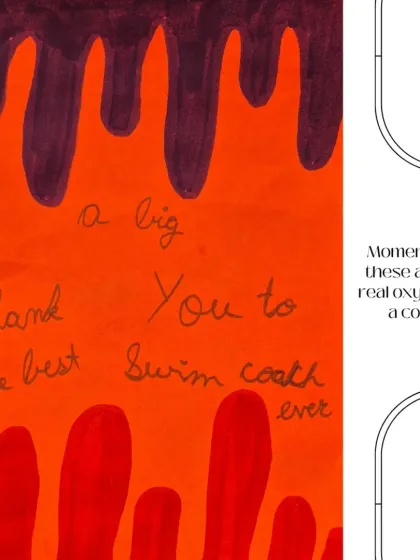 a big
hank You to
e best Swim coach
ever
Momen
these a
real oxy
a co